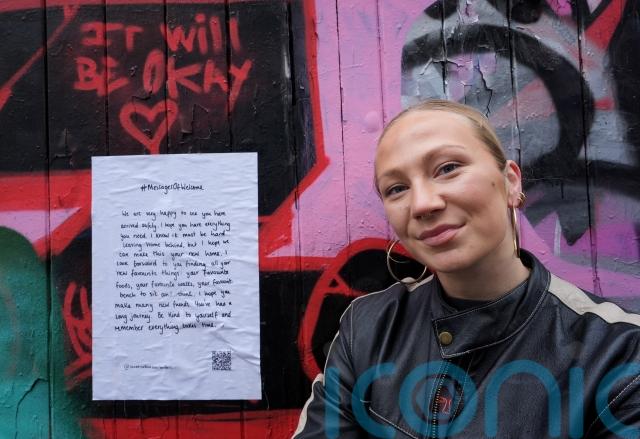 IT Will
BE OKAY
#MessagesOfWelcome
We are very happy to see you have
arrived safely. I hope you have everything
you need. I know it must be hard
leaving home behind, but I hope we
can make this your new home. I
look forward to you finding all your
new favourite things. Your favourite
foods, your favourite walks, your favourite
bench to sit on! I hope you
make many new friends. You've had a
long journey. Be kind to yourself and
remember everything takes time.
iconic